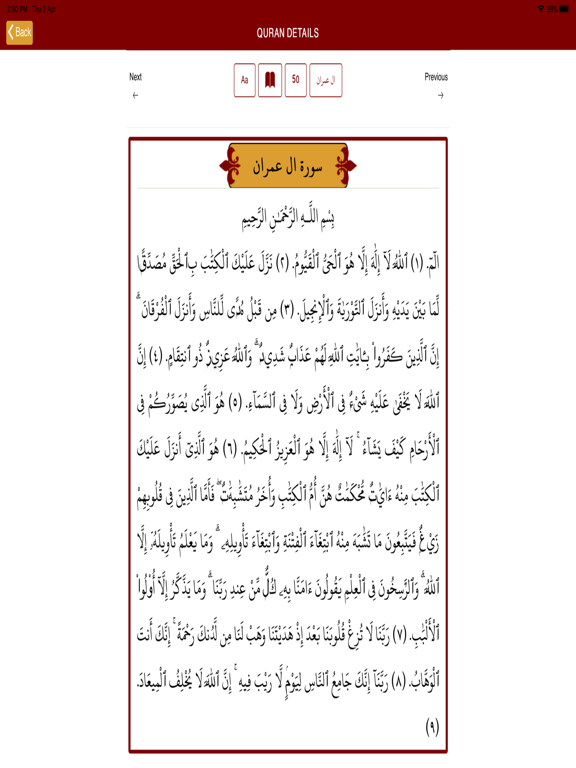 3:50 PM Thu 2 Apr 99%
Back
QURAN DETAILS
Next
←
Aa
50
ال عمران
Previous
→
سورة ال عمران
بِسْمِ اللَّـهِ الرَّحْمَـٰنِ الرَّحِيمِ
الٓمٓ. (١) ٱللَّهُ لَآ إِلَٰهَ إِلَّا هُوَ ٱلْحَىُّ ٱلْقَيُّومُ. (٢) نَزَّلَ عَلَيْكَ ٱلْكِتَٰبَ بِٱلْحَقِّ مُصَدِّقًا
لِّمَا بَيْنَ يَدَيْهِ وَأَنزَلَ ٱلتَّوْرَىٰةَ وَٱلْإِنجِيلَ. (٣) مِن قَبْلُ هُدًى لِّلنَّاسِ وَأَنزَلَ ٱلْفُرْقَانَ ۗ
إِنَّ ٱلَّذِينَ كَفَرُوا۟ بِـَٔايَٰتِ ٱللَّهِ لَهُمْ عَذَابٌ شَدِيدٌ ۗ وَٱللَّهُ عَزِيزٌ ذُو ٱنتِقَامٍ. (٤) إِنَّ
ٱللَّهَ لَا يَخْفَىٰ عَلَيْهِ شَىْءٌ فِى ٱلْأَرْضِ وَلَا فِى ٱلسَّمَآءِ. (٥) هُوَ ٱلَّذِى يُصَوِّرُكُمْ فِى
ٱلْأَرْحَامِ كَيْفَ يَشَآءُ ۚ لَآ إِلَٰهَ إِلَّا هُوَ ٱلْعَزِيزُ ٱلْحَكِيمُ. (٦) هُوَ ٱلَّذِىٓ أَنزَلَ عَلَيْكَ
ٱلْكِتَٰبَ مِنْهُ ءَايَٰتٌ مُّحْكَمَٰتٌ هُنَّ أُمُّ ٱلْكِتَٰبِ وَأُخَرُ مُتَشَٰبِهَٰتٌ ۖ فَأَمَّا ٱلَّذِينَ فِى قُلُوبِهِمْ
زَيْغٌ فَيَتَّبِعُونَ مَا تَشَٰبَهَ مِنْهُ ٱبْتِغَآءَ ٱلْفِتْنَةِ وَٱبْتِغَآءَ تَأْوِيلِهِۦ ۗ وَمَا يَعْلَمُ تَأْوِيلَهُۥٓ إِلَّا
ٱللَّهُ ۗ وَٱلرَّٰسِخُونَ فِى ٱلْعِلْمِ يَقُولُونَ ءَامَنَّا بِهِۦ كُلٌّ مِّنْ عِندِ رَبِّنَا ۗ وَمَا يَذَّكَّرُ إِلَّآ أُو۟لُوا۟
ٱلْأَلْبَٰبِ. (٧) رَبَّنَا لَا تُزِغْ قُلُوبَنَا بَعْدَ إِذْ هَدَيْتَنَا وَهَبْ لَنَا مِن لَّدُنكَ رَحْمَةً ۚ إِنَّكَ أَنتَ
ٱلْوَهَّابُ. (٨) رَبَّنَآ إِنَّكَ جَامِعُ ٱلنَّاسِ لِيَوْمٍ لَّا رَيْبَ فِيهِ ۚ إِنَّ ٱللَّهَ لَا يُخْلِفُ ٱلْمِيعَادَ.
(٩)